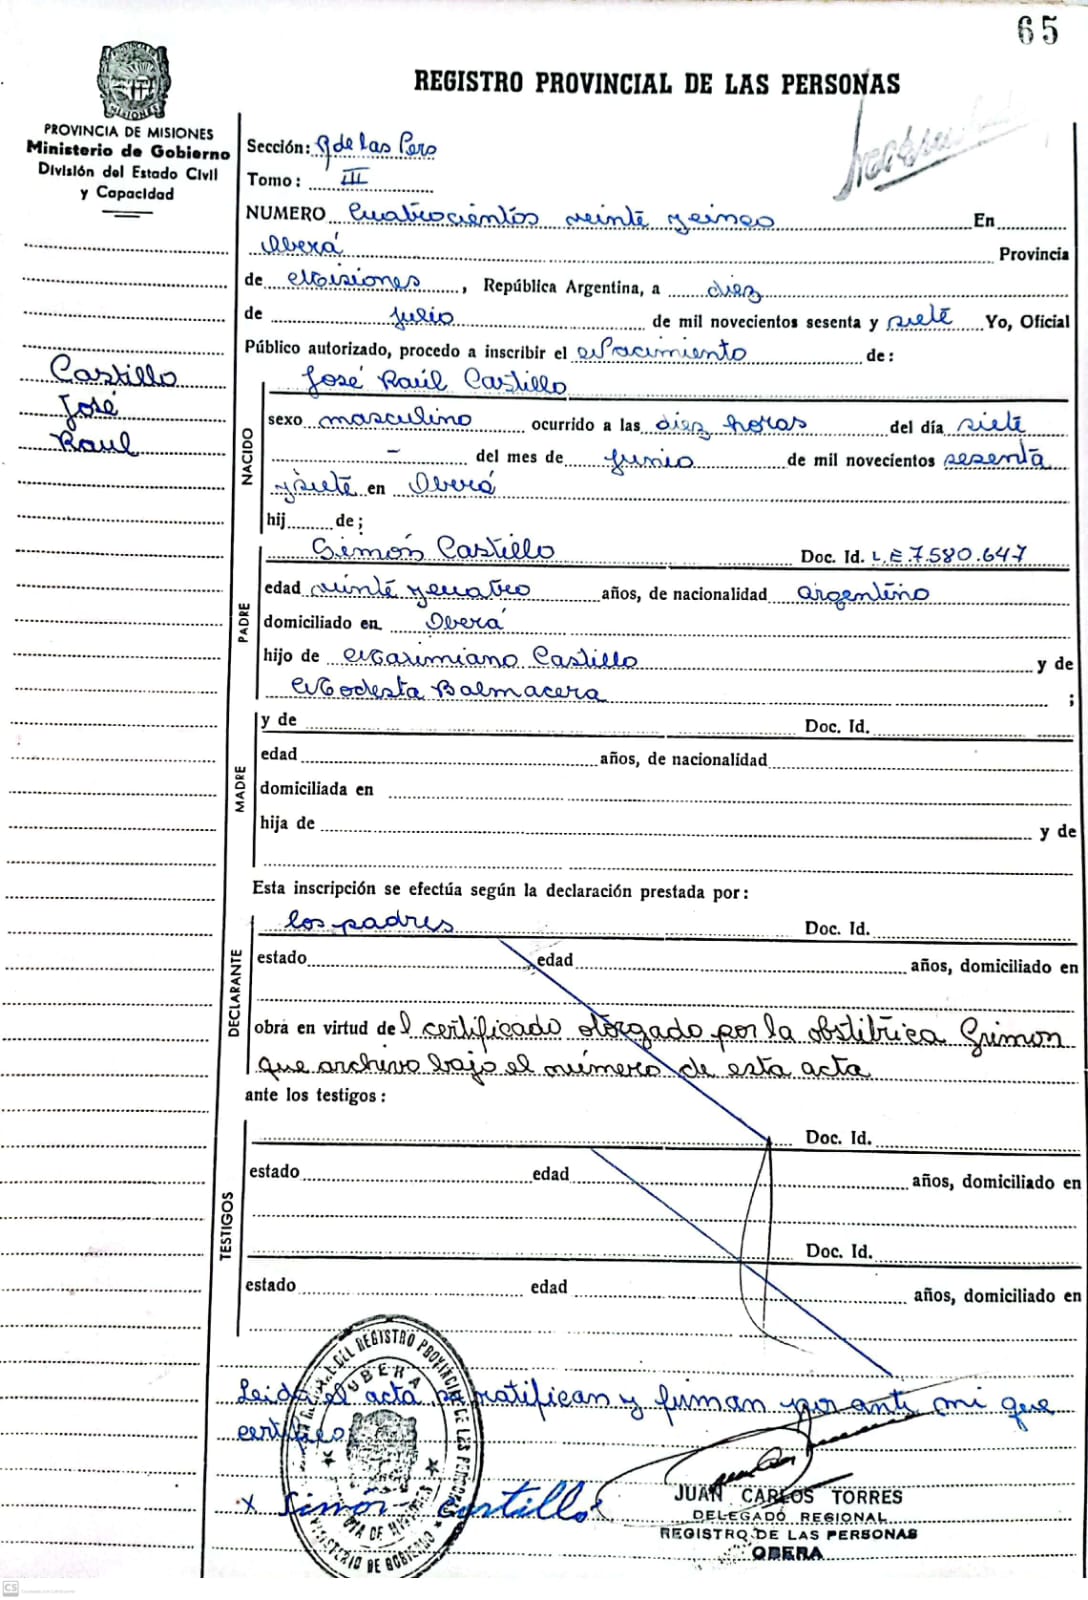 65
REGISTRO PROVINCIAL DE LAS PERSONAS
MISIONES
PROVINCIA DE MISIONES
Ministerio de Gobierno
División del Estado Civil
y Capacidad
Castillo
José
Raul
Sección: R de las Pers
Tomo: III
NUMERO Cuatrocientos veinte y cinco En
Oberá Provincia
de Misiones, República Argentina, a diez
de julio de mil novecientos sesenta y siete Yo, Oficial
Público autorizado, procedo a inscribir el Nacimiento de:
NACIDO
José Raúl Castillo
sexo masculino ocurrido a las diez horas del día siete
- del mes de junio de mil novecientos sesenta
y siete en Oberá
hij de;
PADRE
Simón Castillo Doc. Id. L.E.7.580.647
edad veinte y cuatro años, de nacionalidad argentino
domiciliado en Oberá
hijo de Maximiano Castillo y de
Modesta Balmacera ;
MADRE
y de Doc. Id.
edad años, de nacionalidad
domiciliada en
hija de y de
Esta inscripción se efectúa según la declaración prestada por:
DECLARANTE
los padres Doc. Id.
estado edad años, domiciliado en
obra en virtud del certificado otorgado por la obstétrica Grimon
que archivo bajo el número de esta acta
ante los testigos:
TESTIGOS
Doc. Id.
estado edad años, domiciliado en
Doc. Id.
estado edad años, domiciliado en
Leida el acta se ratifican y firman por ante mi que
certifico
x Simón Castillo
DEL REGISTRO PROVINCIAL DE LAS PERSONAS
OBERA
MINISTERIO DE GOBIERNO
JUAN CARLOS TORRES
DELEGADO REGIONAL
REGISTRO DE LAS PERSONAS
OBERA
CS